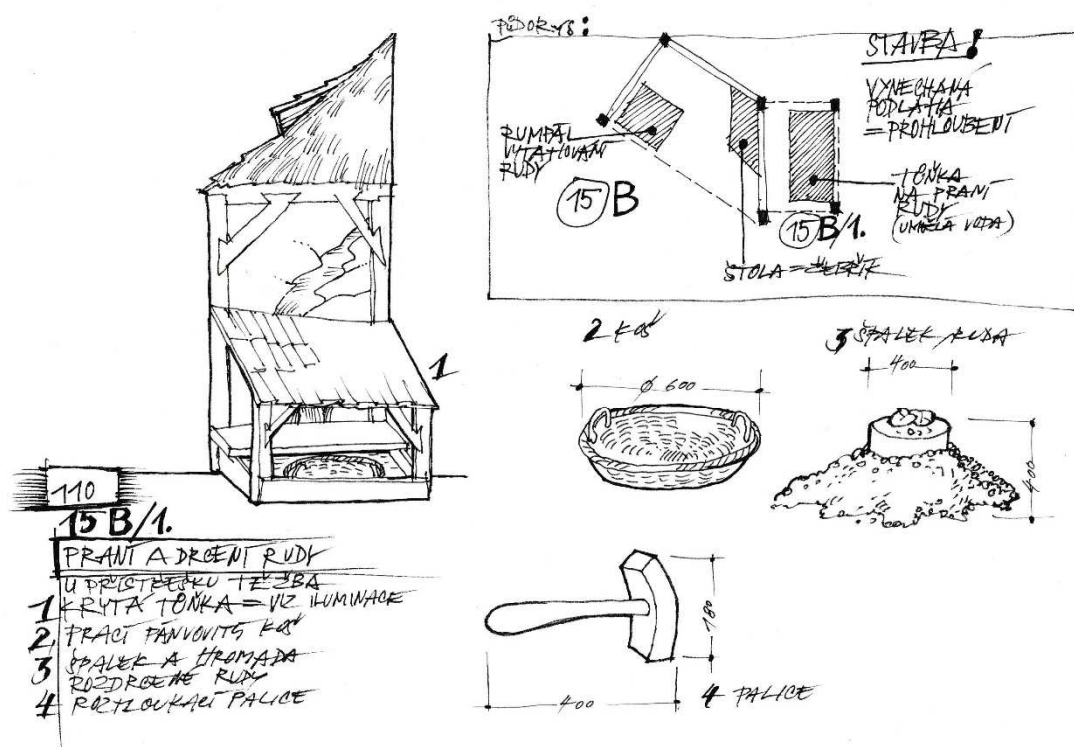 PŮDORYS:
STAVBA!
VYNECHANÁ
PODLAHA
= PROHLOUBENÍ
RUMPÁL
VYTAHOVÁNÍ
RUDY
15 B
TŮŇKA
NA PRANÍ
RUDY
(UMĚLÁ VODA)
15 B/1.
ŠTOLA = ŽEBŘÍK
1
2 KOŠ
ø 600
3 ŠPALEK / RUDA
400
400
110
15 B/1.
PRANÍ A DRCENÍ RUDY
U PŘÍSTŘEŠKU TĚŽBA
1 KRYTÁ TŮŇKA = VIZ ILUMINACE
2 PRACÍ PÁNVOVITÝ KOŠ
3 ŠPALEK A HROMADA
ROZDRCENÉ RUDY
4 ROZTLOUKACÍ PALICE
180
400
4 PALICE